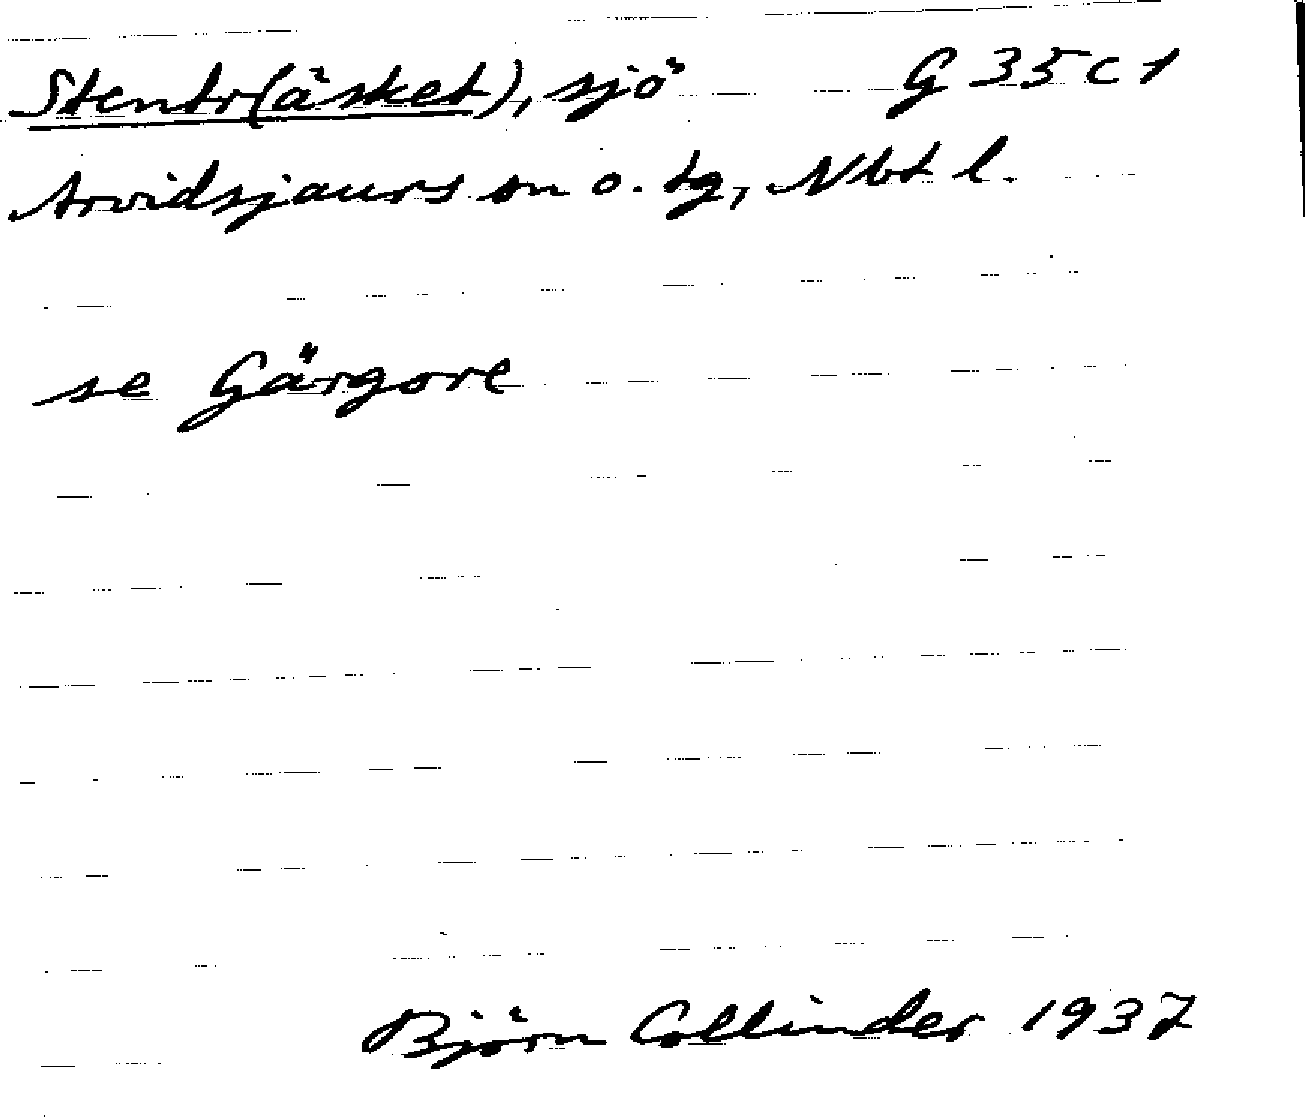 Stentr(äsket), sjö G 35 c 1
Arvidsjaurs sn o. tg, Nbt l.
se Gärgore
Björn Collinder 1937